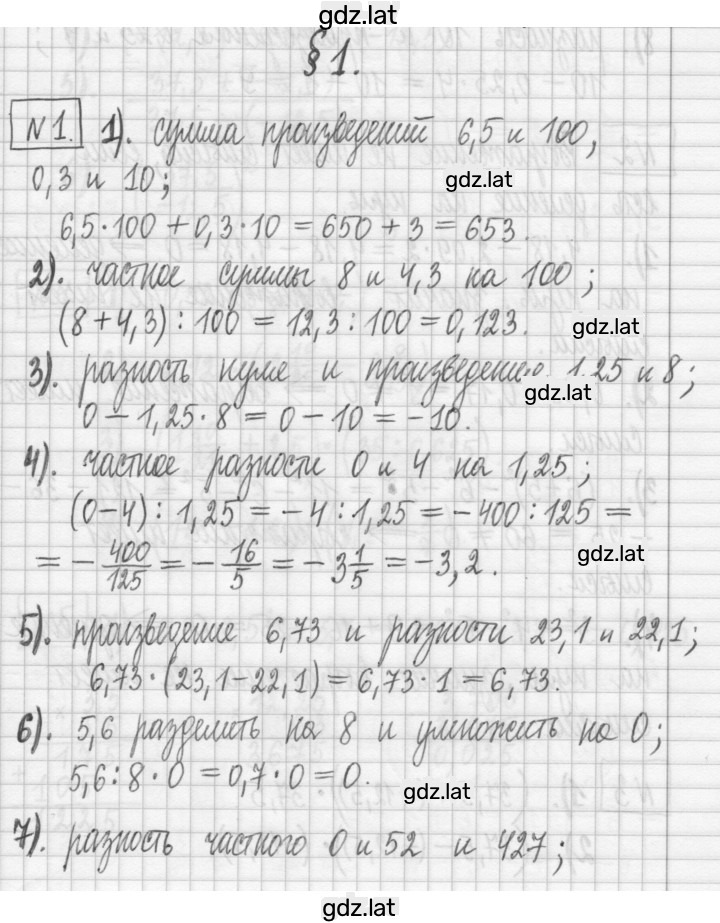 gdz.lat
§ 1.
№1. 1). сумма произведений 6,5 и 100,
0,3 и 10;
gdz.lat
6,5·100 + 0,3·10 = 650 + 3 = 653.
2). частное суммы 8 и 4,3 на 100;
(8 + 4,3) : 100 = 12,3 : 100 = 0,123.
gdz.lat
3). разность нуля и произведения 1,25 и 8;
gdz.lat
0 − 1,25·8 = 0 − 10 = −10.
4). частное разности 0 и 4 на 1,25;
(0−4) : 1,25 = −4 : 1,25 = −400 : 125 =
= −400/125 = −16/5 = −3 1/5 = −3,2.
gdz.lat
5). произведение 6,73 и разности 23,1 и 22,1;
6,73·(23,1−22,1) = 6,73·1 = 6,73.
6). 5,6 разделить на 8 и умножить на 0;
5,6 : 8 · 0 = 0,7 · 0 = 0.
gdz.lat
7). разность частного 0 и 52 и 427;
gdz.lat